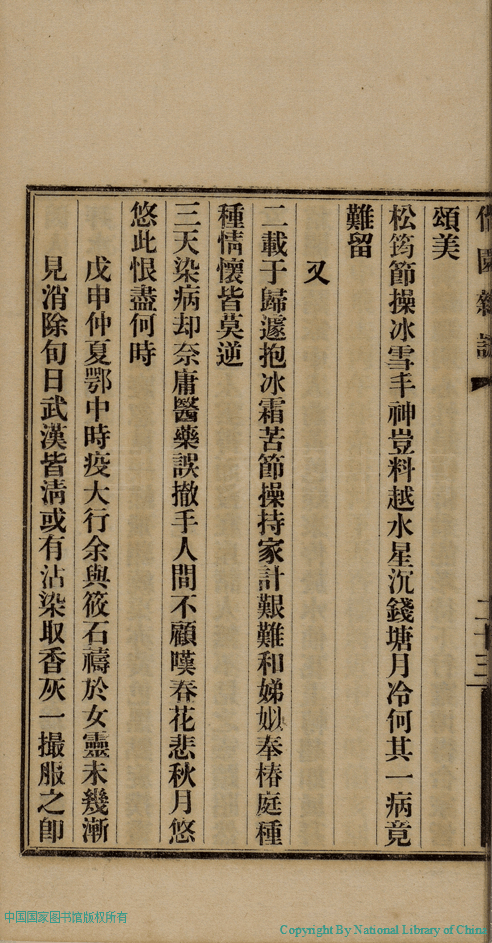 園雜
二十三
頌美
松筠節操冰雪丰神豈料越水星沉錢塘月冷何其一病竟
難留
又
二載于歸遽抱冰霜苦節操持家計艱難和娣姒奉椿庭種
種情懷皆莫逆
三天染病却奈庸醫藥誤撤手人間不顧嘆春花悲秋月悠
悠此恨盡何時
戊申仲夏鄂中時疫大行余與筱石禱於女靈未幾漸
見消除旬日武漢皆淸或有沾染取香灰一撮服之卽
中国国家图书馆版权所有
Copyright By National Library of China